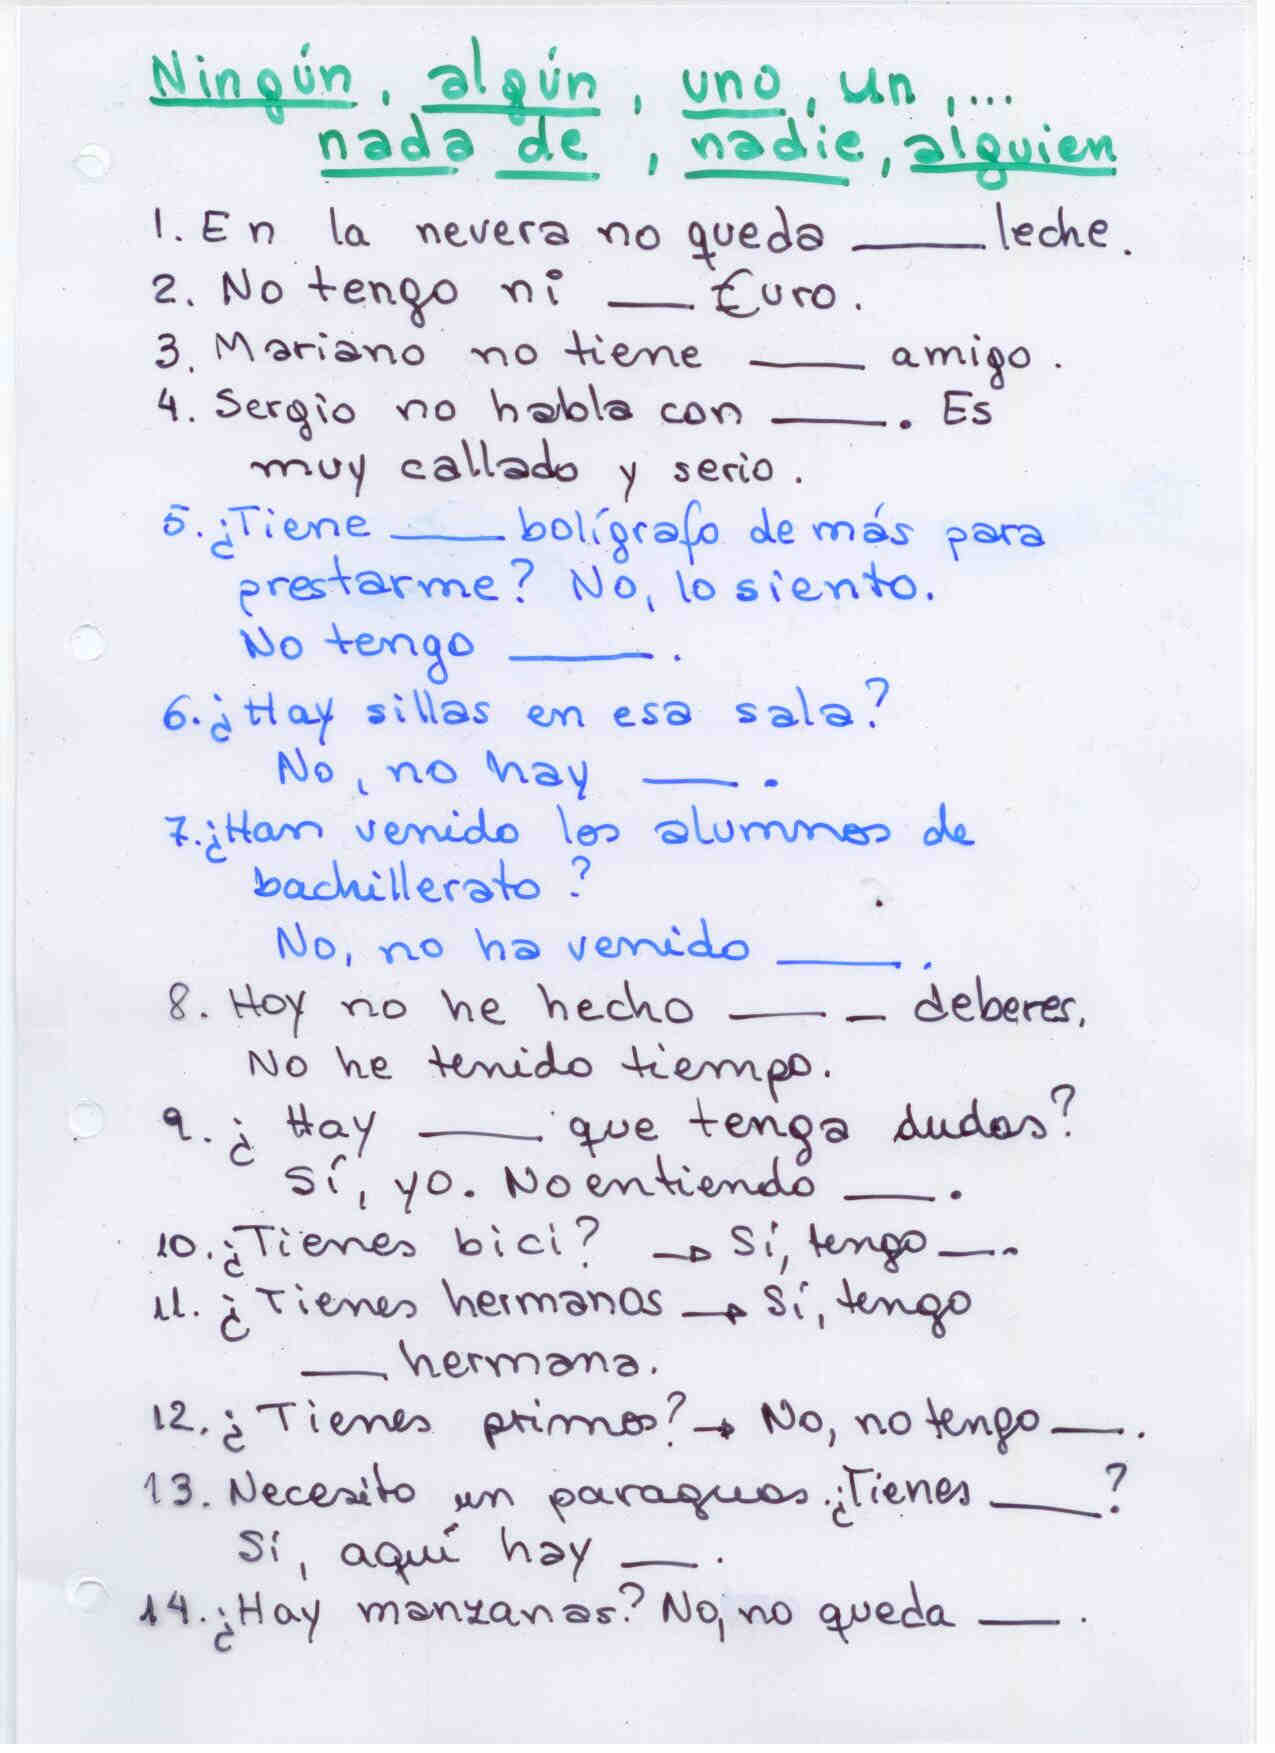 Ningún, algún, uno, un, ...
nada de, nadie, alguien
1. En la nevera no queda ____ leche.
2. No tengo ni ___ €uro.
3. Mariano no tiene ____ amigo.
4. Sergio no habla con ____. Es
muy callado y serio.
5. ¿Tiene ____ bolígrafo de más para
prestarme? No, lo siento.
No tengo _____.
6. ¿Hay sillas en esa sala?
No, no hay ___.
7. ¿Han venido los alumnos de
bachillerato?
No, no ha venido ____.
8. Hoy no he hecho ___ _ deberes.
No he tenido tiempo.
9. ¿Hay ____ que tenga dudas?
Sí, yo. No entiendo ___.
10. ¿Tienes bici? → Sí, tengo ___.
11. ¿Tienes hermanos → Sí, tengo
___ hermana.
12. ¿Tienes primos? → No, no tengo ___.
13. Necesito un paraguas. ¿Tienes ____?
Sí, aquí hay ___.
14. ¿Hay manzanas? No, no queda ___.